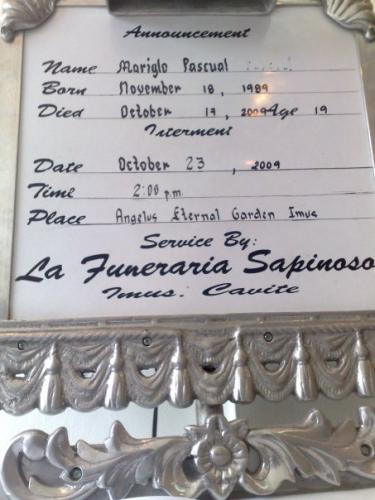 Announcement
Name Mariglo Pascual
Born November 18, 1989
Died October 17, 2009 Age 19
Interment
Date October 23, 2009
Time 2:00 p.m.
Place Angelus Eternal Garden Imus
Service By:
La Funeraria Sapinoso
Imus. Cavite